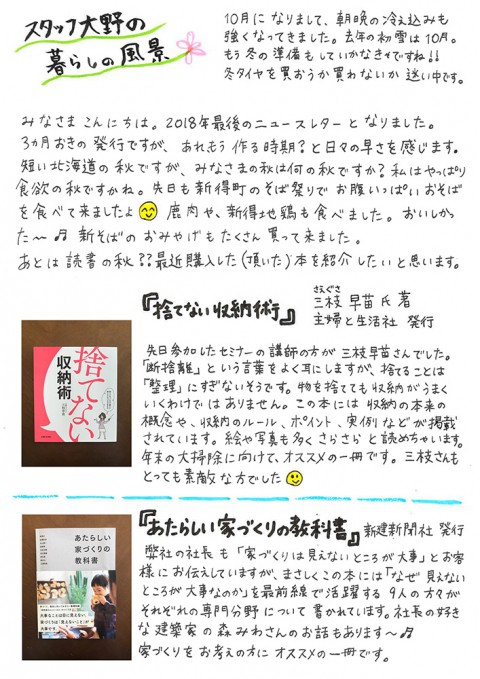 スタッフ大野の
暮らしの風景
10月になりまして、朝晩の冷え込みも
強くなってきました。去年の初雪は10月。
もう冬の準備もしていかなきゃですね!!
冬タイヤを買おうか買わないか迷い中です。
みなさまこんにちは。2018年最後のニュースレターとなりました。
3ヵ月おきの発行ですが、あれもう作る時期?と日々の早さを感じます。
短い北海道の秋ですが、みなさまの秋は何の秋ですか?私はやっぱり
食欲の秋ですかね。先日も新得町のそば祭りでお腹いっぱいおそば
を食べて来ましたよ 鹿肉や、新得地鶏も食べました。おいしかっ
た〜♬ 新そばのおみやげもたくさん買って来ました。
あとは読書の秋??最近購入した(頂いた)本を紹介したいと思います。
『捨てない収納術』
さえぐさ
三枝 早苗氏 著
主婦と生活社 発行
捨てない
収納術
先日参加したセミナーの講師の方が三枝早苗さんでした。
「断捨離」という言葉をよく耳にしますが、捨てることは
「整理」にすぎないそうです。物を捨てても収納がうまく
いくわけではありません。この本には収納の本来の
概念や、収納のルール、ポイント、実例などが掲載
されています。絵や写真も多くさらさらと読めちゃいます。
年末の大掃除に向けて、オススメの一冊です。三枝さんも
とっても素敵な方でした
『あたらしい家づくりの教科書』 新建新聞社 発行
あたらしい
家づくりの
教科書
大事なことは目に見えない。
家づくりは「見えないところ」が
大事です。
弊社の社長も「家づくりは見えないところが大事」とお客
様にお伝えしていますが、まさしくこの本には「なぜ見えない
ところが大事なのか」を最前線で活躍する9人の方々が
それぞれの専門分野について書かれています。社長の好き
な建築家の森みわさんのお話もあります〜♬
家づくりをお考えの方にオススメの一冊です。